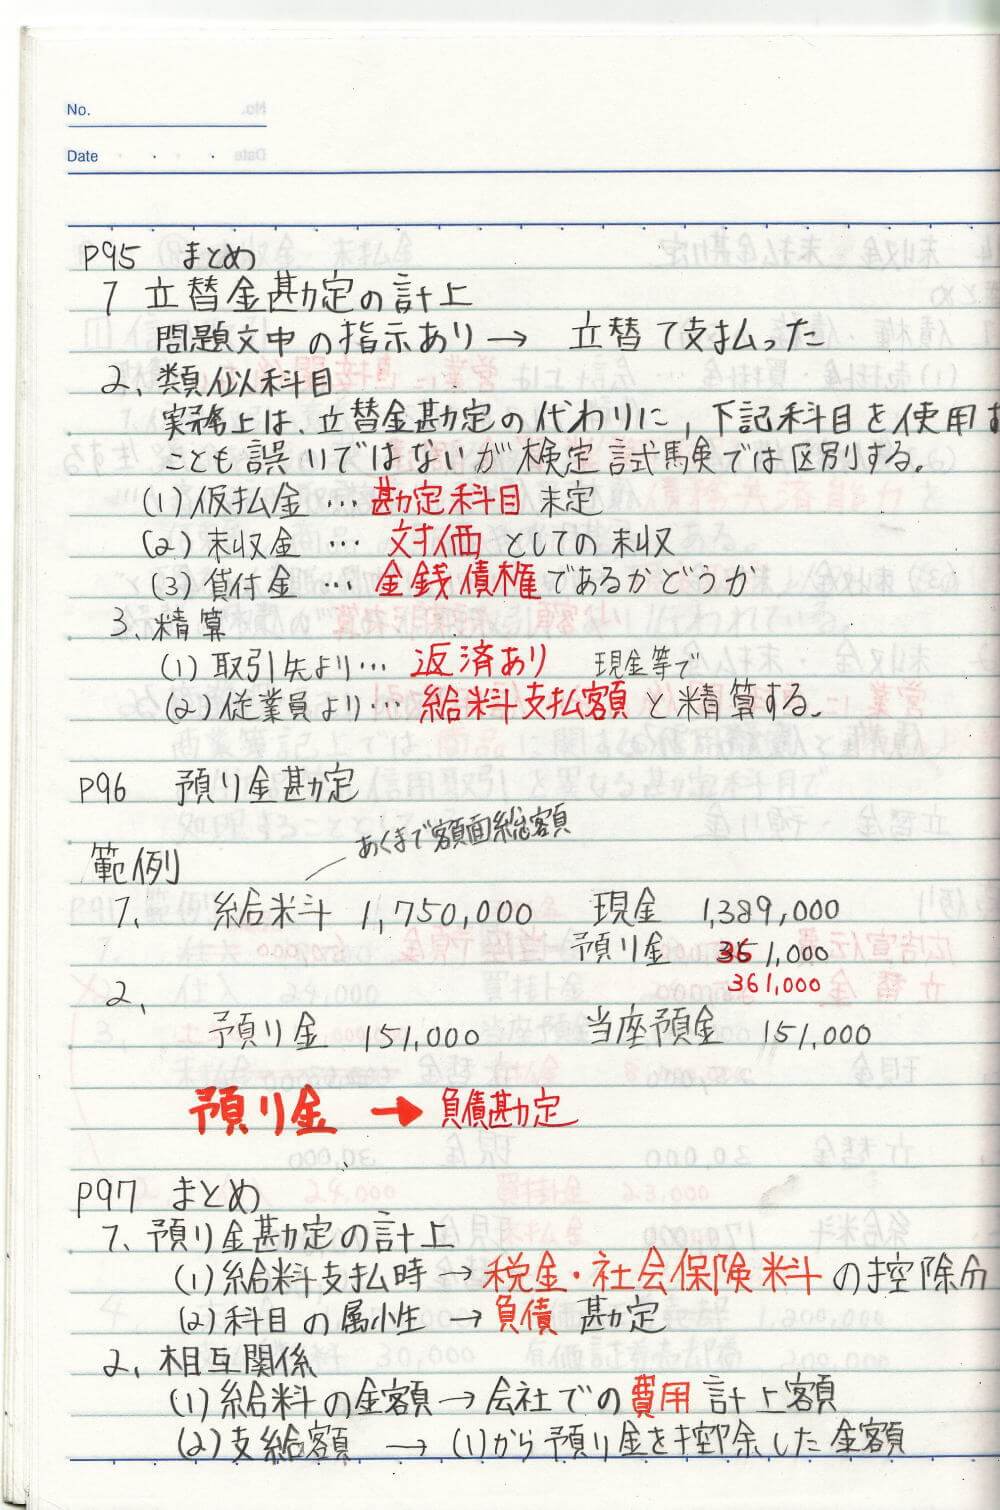 No.
Date
P95 まとめ
1 立替金勘定の計上
問題文中の指示あり→ 立替て支払った
2、類似科目
実務上は、立替金勘定の代わりに、下記科目を使用す
ことも誤りではないが検定試験では区別する。
(1)仮払金…勘定科目未定
(2)未収金…対価としての未収
(3)貸付金…金銭債権であるかどうか
3、精算
(1)取引先より…返済あり 現金等で
(2)従業員より…給料支払額と精算する。
P96 預り金勘定
あくまで額面総額
範例
1、 給料 1,750,000 現金 1,389,000
預り金 361,000
361,000
2、
預り金 151,000 当座預金 151,000
預り金 → 負債勘定
P97 まとめ
1、預り金勘定の計上
(1)給料支払時→税金・社会保険料の控除分
(2)科目の属性→負債勘定
2、相互関係
(1)給料の金額→会社での費用計上額
(2)支給額 →(1)から預り金を控除した金額